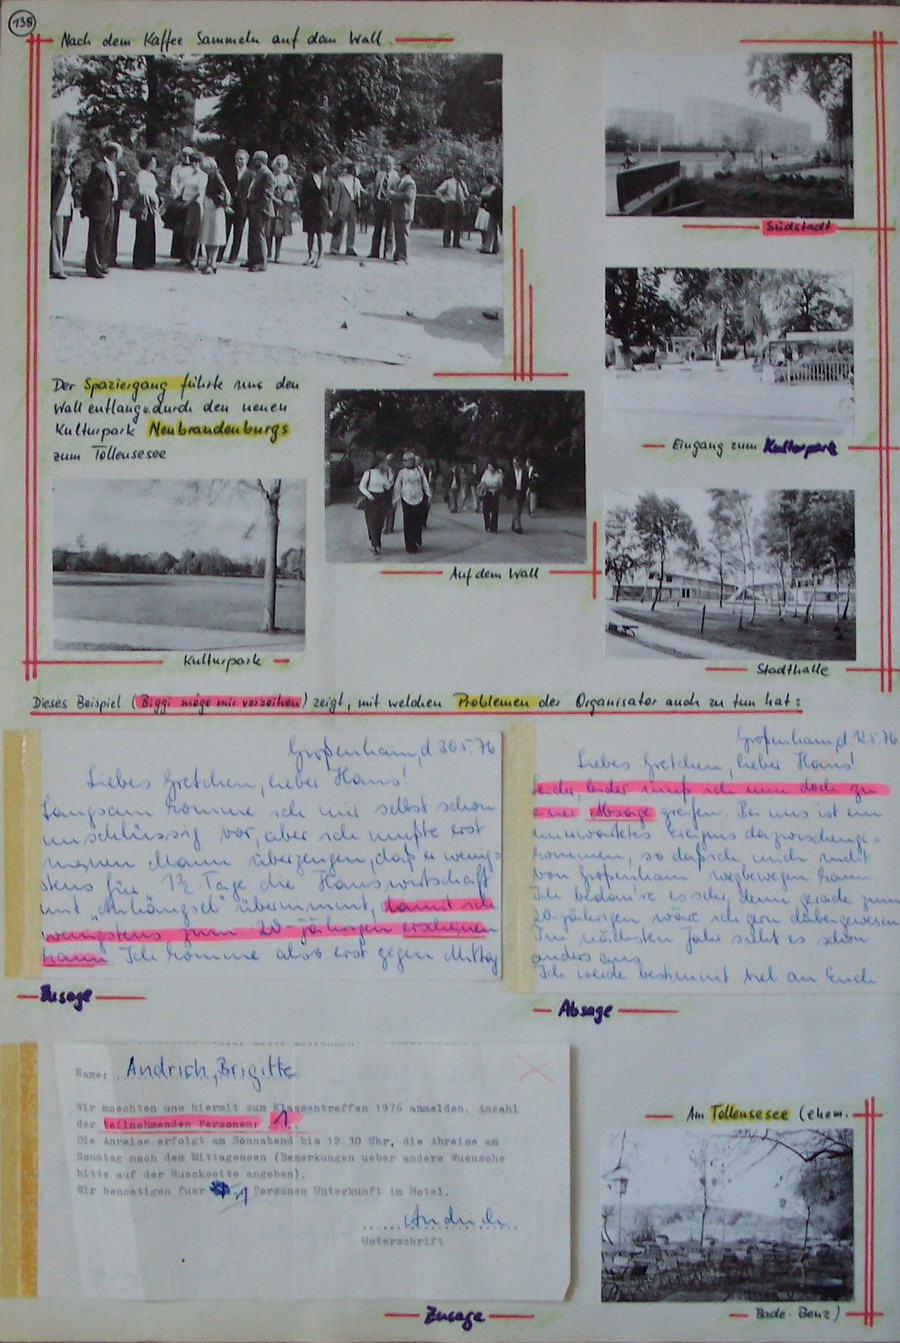 138
Nach dem Kaffee Sammeln auf dem Wall.
Südstadt
Eingang zum Kulturpark
Der Spaziergang führte uns den
Wall entlang u. durch den neuen
Kulturpark Neubrandenburgs
zum Tollensesee
Auf dem Wall
Kulturpark
Stadthalle
Dieses Beispiel (Biggi möge mir verzeihen) zeigt, mit welchen Problemen der Organisator auch zu tun hat:
Großenhain, d. 30.5.76
Liebes Gretchen, lieber Hans!
Langsam komme ich mir selbst schon
unschlüssig vor, aber ich mußte erst
meinen Mann überzeugen, daß er wenig=
stens für 1½ Tage die Hauswirtschaft
mit "Anhängsel" übernimmt, damit ich
wenigstens zum 20-jährigen erscheinen
kann. Ich komme also erst gegen Mittag
Zusage
Großenhain, d. 12.5.76
Liebes Gretchen, lieber Hans!
Leider, leider muß ich nun doch zu
einer Absage greifen. Bei uns ist ein
unerwartetes Ereignis dazwischenge=
kommen, so daß ich mich nicht
von Großenhain wegbewegen kann.
Ich bedaure es sehr, denn gerade zum
20-jährigen wäre ich gern dabeigewesen
Im nächsten Jahr sieht es schon
anders aus.
Ich werde bestimmt viel an Euch
Absage
Name: Andrich, Brigitte
Wir moechten uns hiermit zum Klassentreffen 1976 anmelden. Anzahl
der teilnehmenden Personen: 1.
Die Anreise erfolgt am Sonnabend bis 12.30 Uhr, die Abreise am
Sonntag nach dem Mittagessen (Bemerkungen ueber andere Wuensche
bitte auf der Rueckseite angeben).
Wir benoetigen fuer 1 Personen Unterkunft im Hotel.
Andrich
Unterschrift
Zusage
Am Tollensesee (ehem.
Bade-Benz)